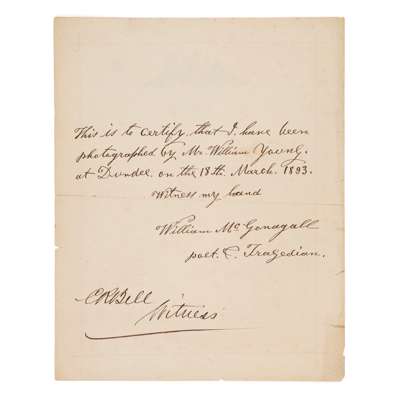 This is to certify, that I have been
photographed by Mr. William Young.
at Dundee on the 18th. March. 1893.
Witness my hand
William McGonagall
poet. & Tragedian.
C R Bell
Witness